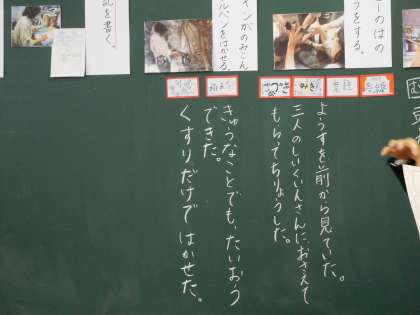 ーのはの
うをする。
インがのみこん
ルペンをはかせる
札を書く。
さつき
みき
ようすを前から見ていた。
三人のしいくいんさんに、おさえて
もらってちりょうした。
きゅうなことでも、たいおう
できた。
くすりだけではかせた。